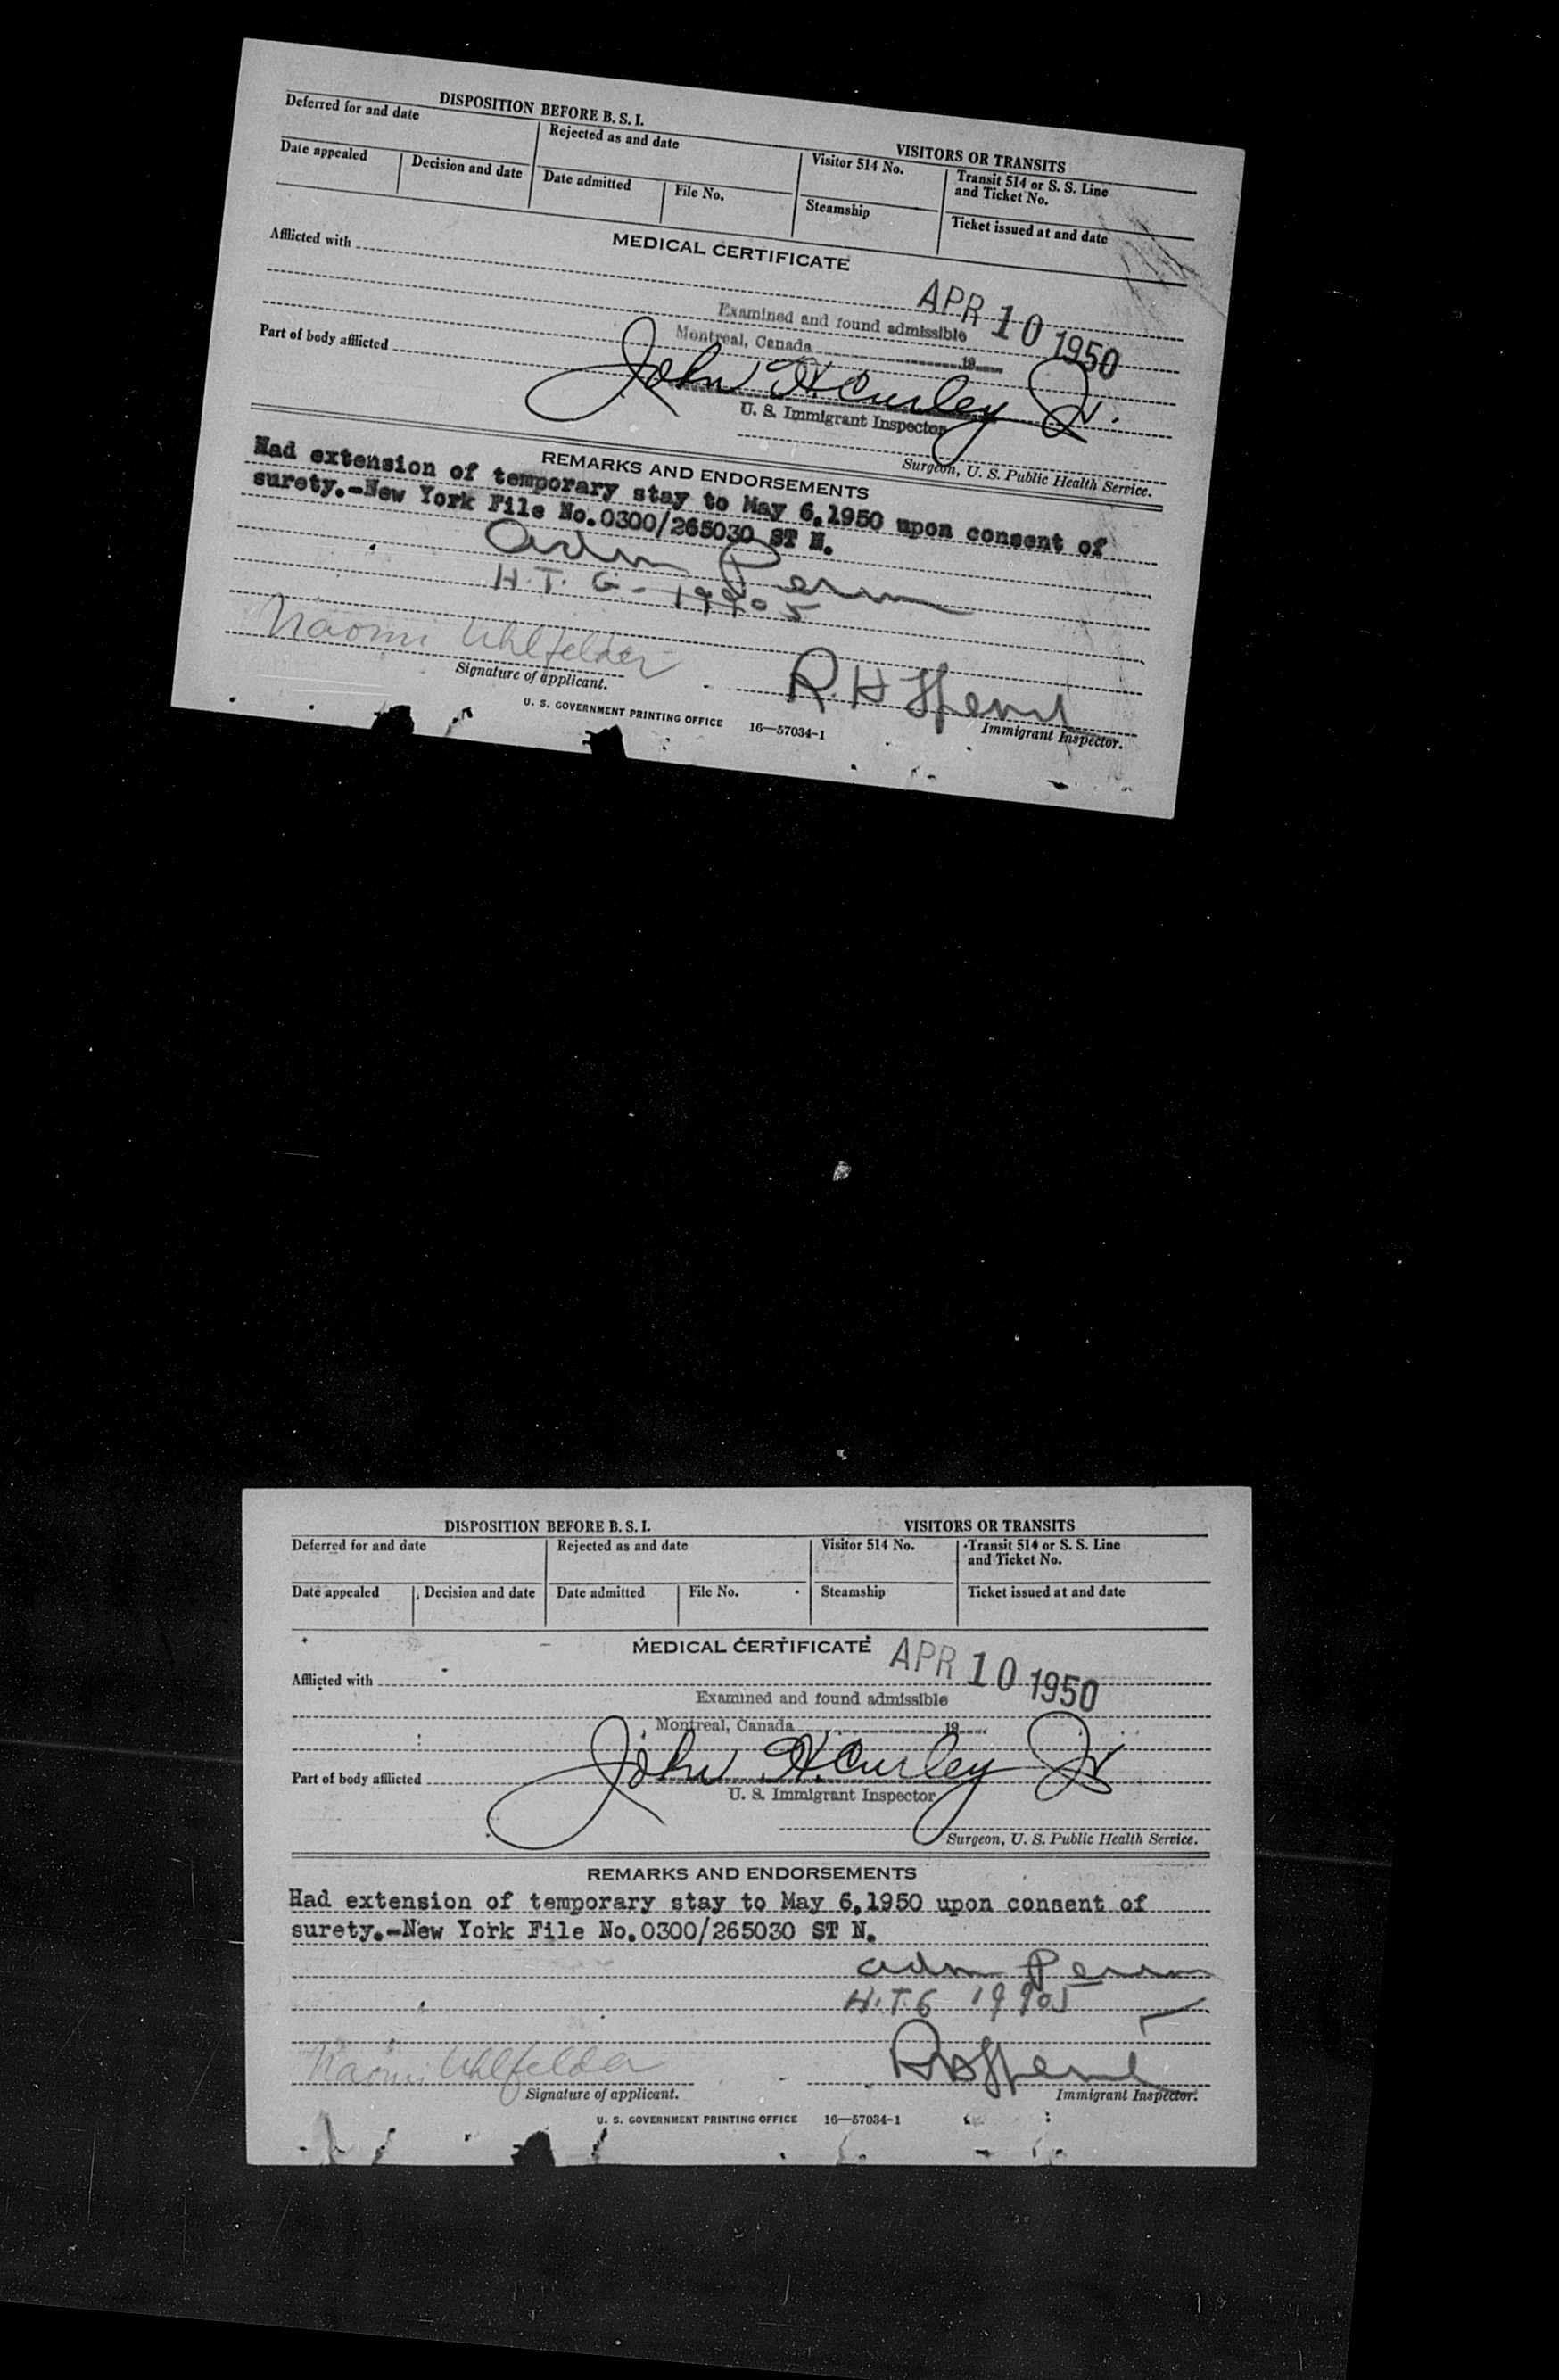 DISPOSITION BEFORE B. S. I.
VISITORS OR TRANSITS
Deferred for and date
Rejected as and date
Visitor 514 No.
Transit 514 or S. S. Line
and Ticket No.
Date appealed
Decision and date
Date admitted
File No.
Steamship
Ticket issued at and date
MEDICAL CERTIFICATE
Afflicted with
APR 10 1950
Examined and found admissible
Montreal, Canada 19
Part of body afflicted
John H Curley Jr.
U. S. Immigrant Inspector
Surgeon, U. S. Public Health Service.
REMARKS AND ENDORSEMENTS
Had extension of temporary stay to May 6,1950 upon consent of
surety.-New York File No.0300/265030 ST N.
adm Perm
H.T.G-19905
Naomi Uhlfelder
R.H
Signature of applicant.
Immigrant Inspector.
U. S. GOVERNMENT PRINTING OFFICE 16—57034-1
DISPOSITION BEFORE B. S. I.
VISITORS OR TRANSITS
Deferred for and date
Rejected as and date
Visitor 514 No.
Transit 514 or S. S. Line
and Ticket No.
Date appealed
Decision and date
Date admitted
File No.
Steamship
Ticket issued at and date
MEDICAL CERTIFICATE
APR 10 1950
Afflicted with
Examined and found admissible
Montreal, Canada 19
John H. Curley Jr
Part of body afflicted
U. S. Immigrant Inspector
Surgeon, U. S. Public Health Service.
REMARKS AND ENDORSEMENTS
Had extension of temporary stay to May 6,1950 upon consent of
surety.-New York File No.0300/265030 ST N.
adm Perm
H.T.G 19905
Naomi Uhlfelder
Signature of applicant.
Immigrant Inspector.
U. S. GOVERNMENT PRINTING OFFICE 16—57034-1